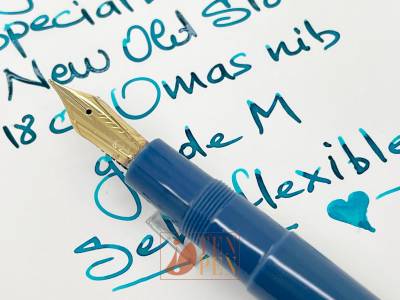 Special
New Old Sto
18 c Omas nib
grade M
Semi flexible
FENN
PEN